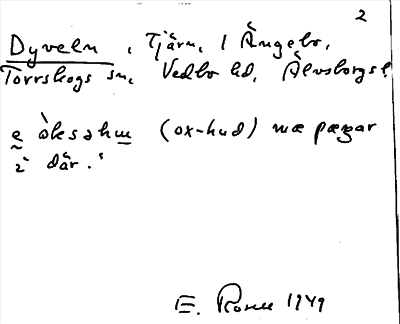 2
Dyveln, Tjärn, i Ängebo,
Torrskogs sn, Vedbo hd, Älvsborgs l.
e òksahuu (ox-hud) mæ pæŋar
i där."
E. Rosell 1949